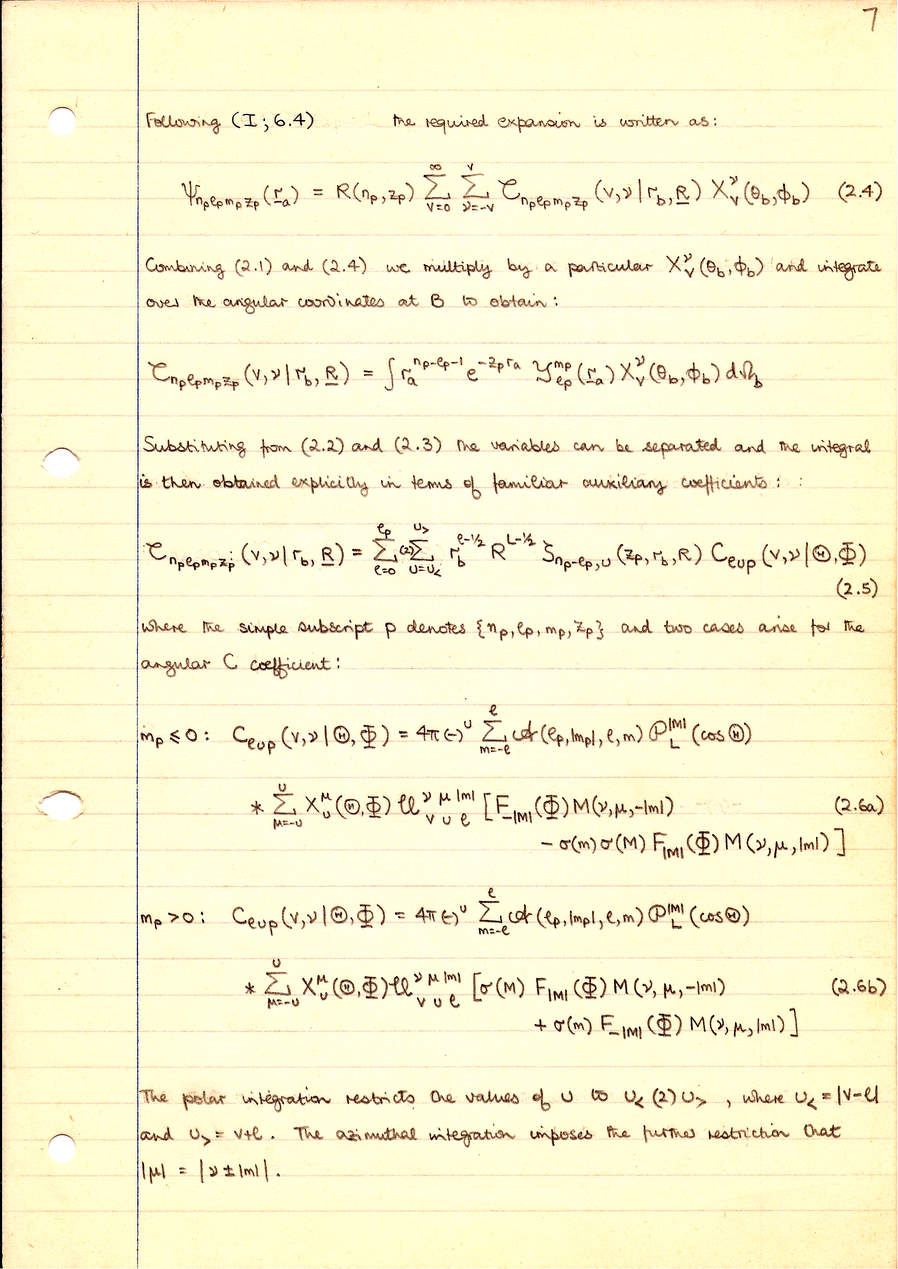 7
Following (I; 6.4) the required expansion is written as:
Ψ_{n_p l_p m_p z_p}(r_a) = R(n_p, z_p) Σ_{V=0}^{∞} Σ_{ν=-V}^{V} 𝒞_{n_p l_p m_p z_p}(V,ν|r_b,R) X_V^ν(θ_b,ϕ_b) (2.4)
Combining (2.1) and (2.4) we multiply by a particular X_V^ν(θ_b,ϕ_b) and integrate
over the angular coordinates at B to obtain:
𝒞_{n_p l_p m_p z_p}(V,ν|r_b,R) = ∫ r_a^{n_p-l_p-1} e^{-z_p r_a} 𝒴_{l_p}^{m_p}(r_a) X_V^ν(θ_b,ϕ_b) dΩ_b
Substituting from (2.2) and (2.3) the variables can be separated and the integral
is then obtained explicitly in terms of familiar auxiliary coefficients: :
𝒞_{n_p l_p m_p z_p}(V,ν|r_b,R) = Σ_{l=0}^{l_p} (2)Σ_{U=U<}^{U>} r_b^{l-1/2} R^{L-1/2} ζ_{n_p-l_p,U}(z_p,r_b,R) C_{lUp}(V,ν|Θ,Φ)
(2.5)
where the simple subscript p denotes {n_p, l_p, m_p, z_p} and two cases arise for the
angular C coefficient:
m_p ≤ 0: C_{lUp}(V,ν|Θ,Φ) = 4π (-)^U Σ_{m=-l}^{l} 𝒜(l_p,|m_p|,l,m) 𝒫_L^{|M|}(cosΘ)
* Σ_{μ=-U}^{U} X_U^μ(Θ,Φ) 𝒰_{V U l}^{ν μ |m|} [F_{-|M|}(Φ) M(ν,μ,-|m|) (2.6a)
- σ(m) σ(M) F_{|M|}(Φ) M(ν,μ,|m|)]
m_p > 0: C_{lUp}(V,ν|Θ,Φ) = 4π (-)^U Σ_{m=-l}^{l} 𝒜(l_p,|m_p|,l,m) 𝒫_L^{|M|}(cosΘ)
* Σ_{μ=-U}^{U} X_U^μ(Θ,Φ) 𝒰_{V U l}^{ν μ |m|} [σ(M) F_{|M|}(Φ) M(ν,μ,-|m|) (2.6b)
+ σ(m) F_{-|M|}(Φ) M(ν,μ,|m|)]
The polar integration restricts the values of U to U< (2) U> , where U< = |V-l|
and U> = V+l. The azimuthal integration imposes the further restriction that
|μ| = |ν ± |m||.